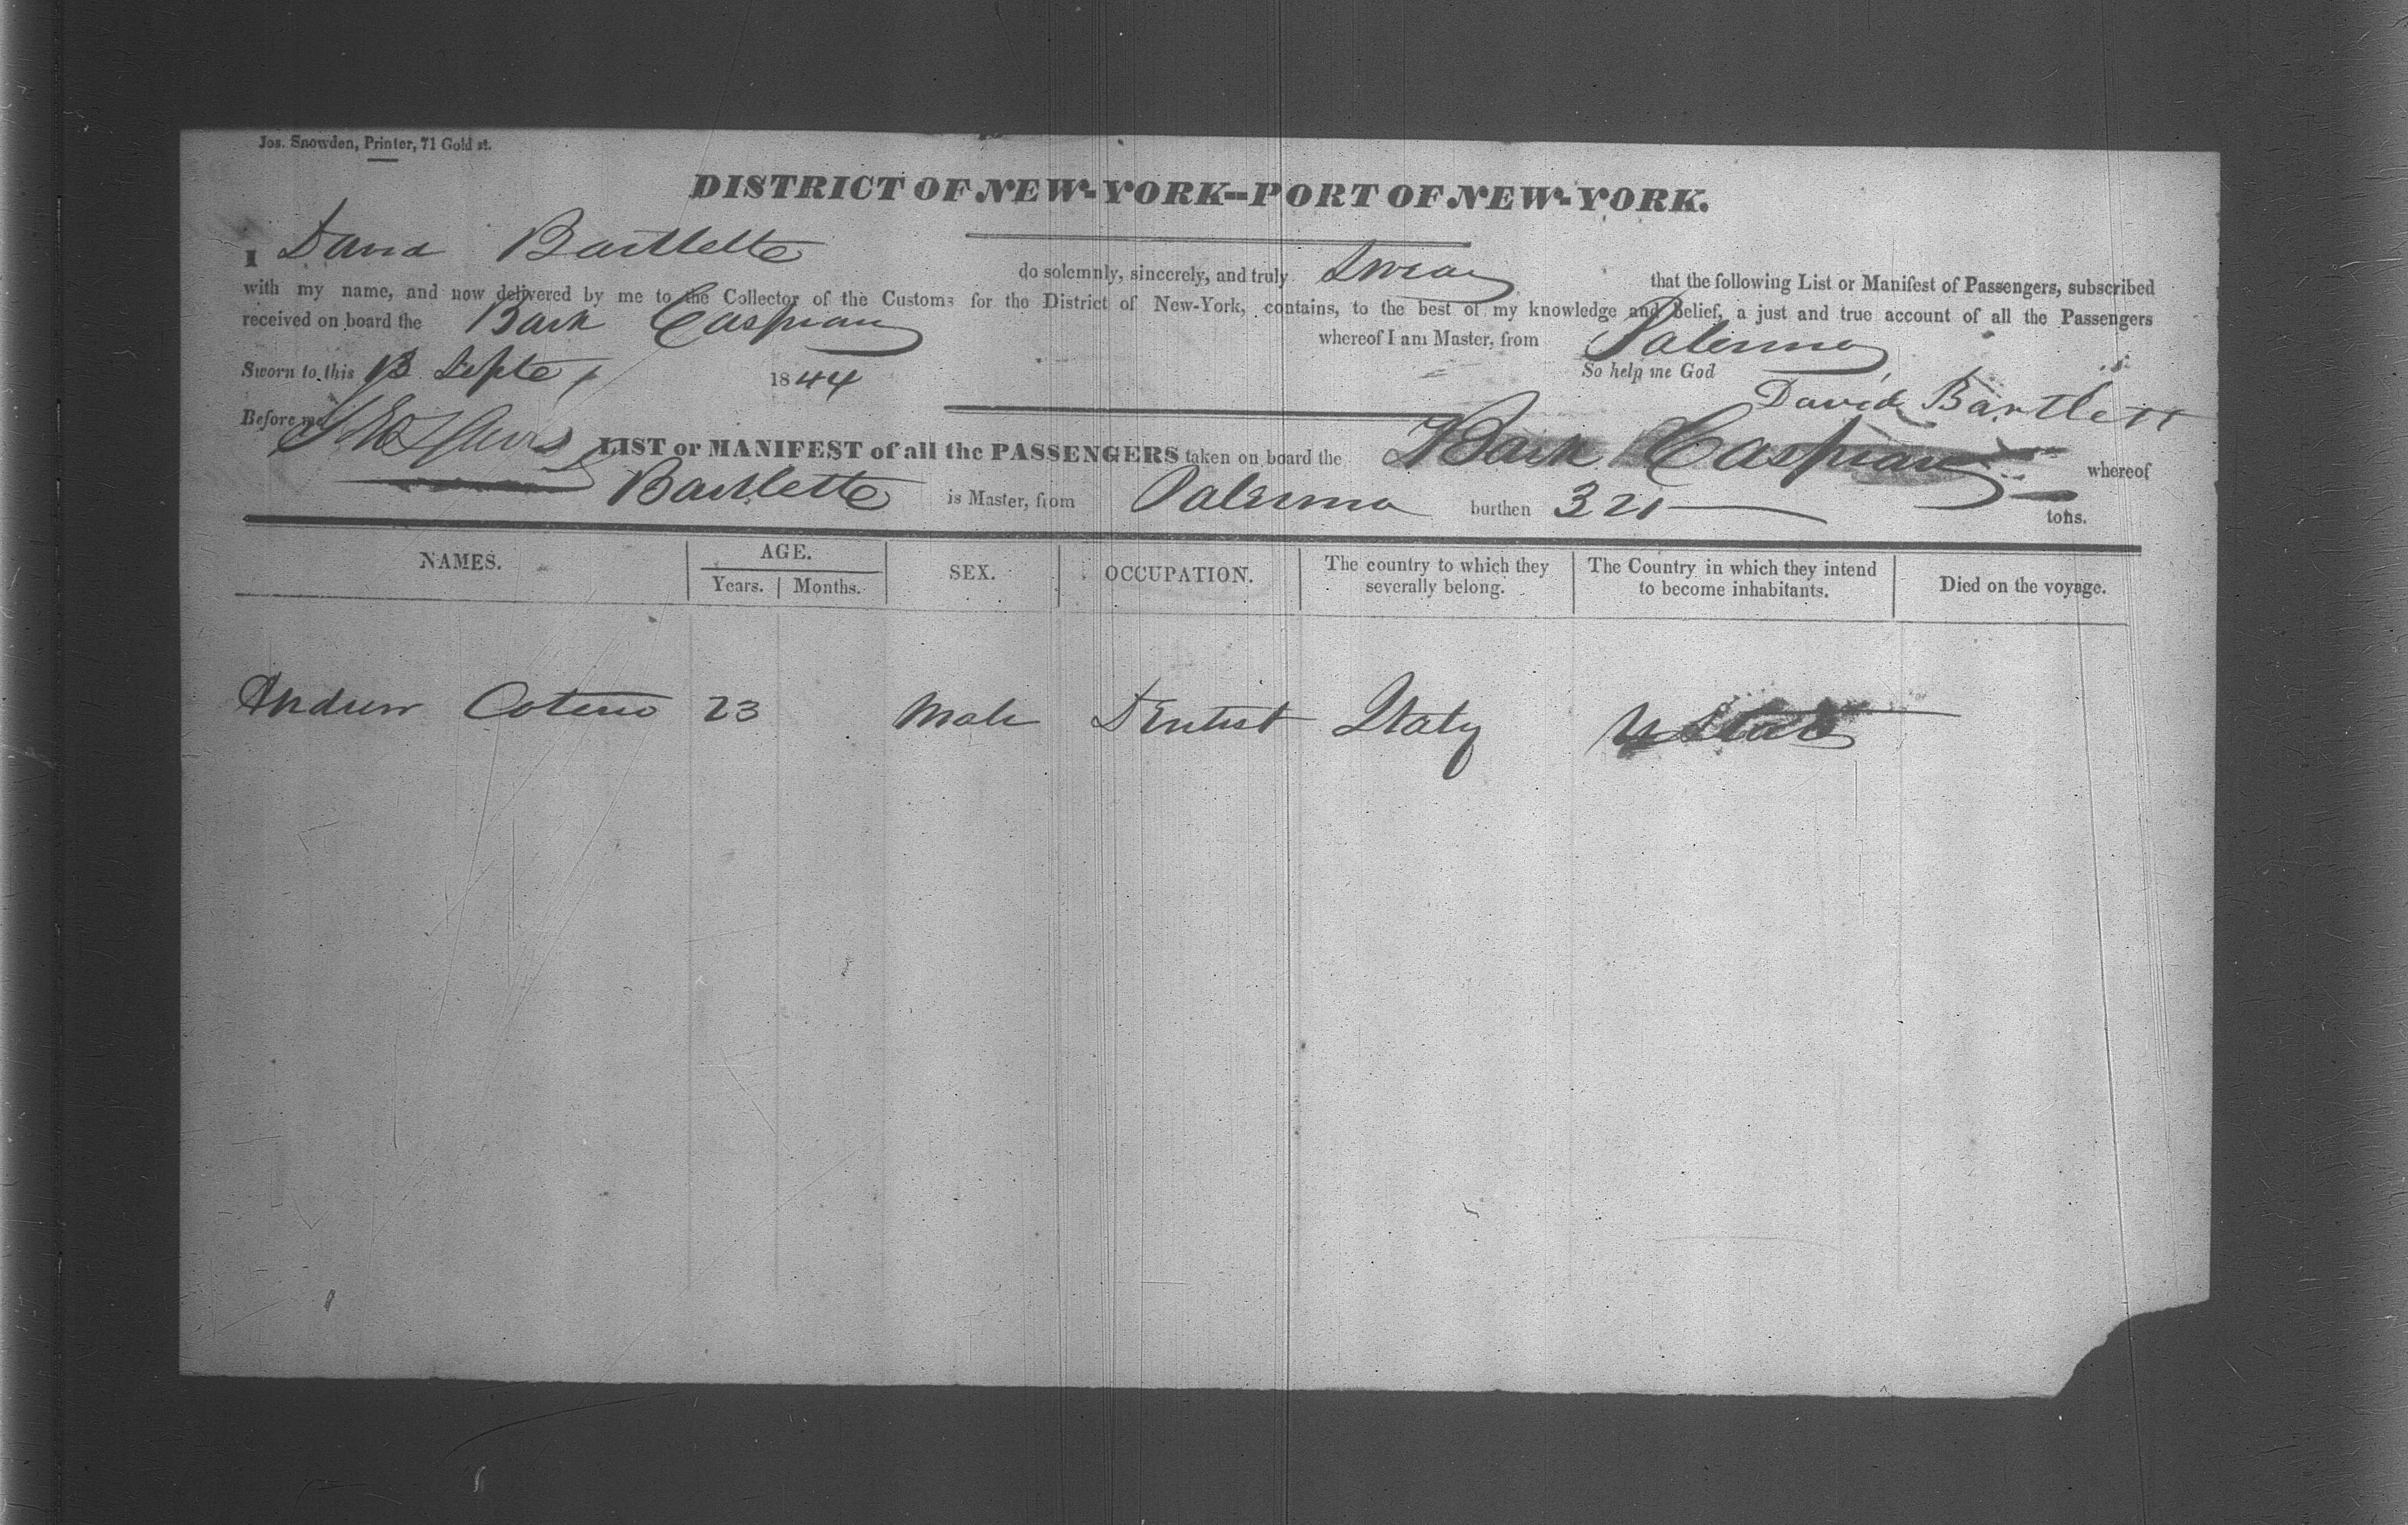 Jos. Snowden, Printer, 71 Gold st.
DISTRICT OF NEW-YORK--PORT OF NEW-YORK.
I David Bartlette do solemnly, sincerely, and truly Swear that the following List or Manifest of Passengers, subscribed
with my name, and now delivered by me to the Collector of the Customs for the District of New-York, contains, to the best of my knowledge and Belief, a just and true account of all the Passengers
received on board the Bark Caspian whereof I am Master, from Palermo
Sworn to this 13 Septe 1844 So help me God
David Bartlett
Before me
LIST or MANIFEST of all the PASSENGERS taken on board the Bark Caspian whereof
Bartlette is Master, from Palermo burthen 321 tons.
NAMES. AGE. SEX. OCCUPATION. The country to which they severally belong. The Country in which they intend to become inhabitants. Died on the voyage.
Years. Months.
Andrew 23 Male Dentist Italy U States